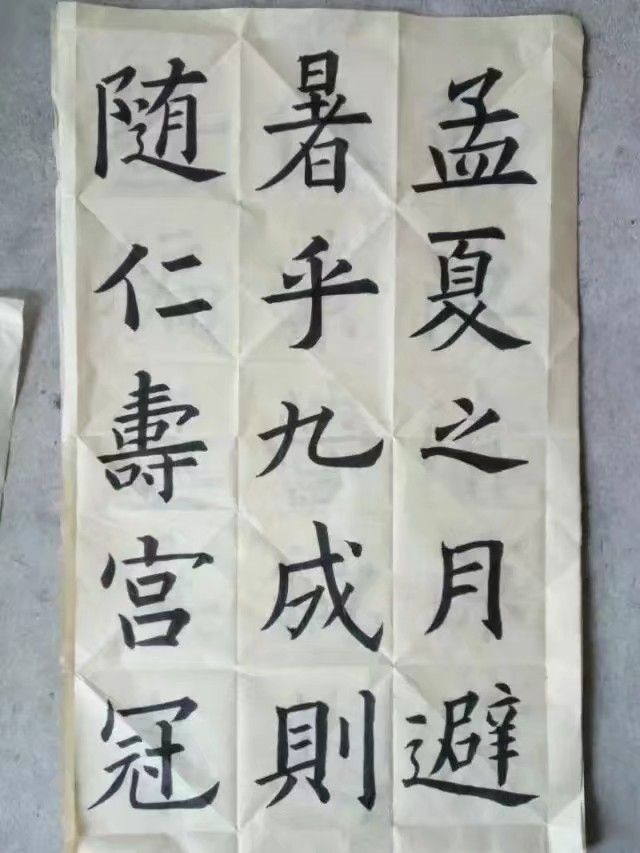 孟夏之月避
暑乎九成則
随仁壽宮冠